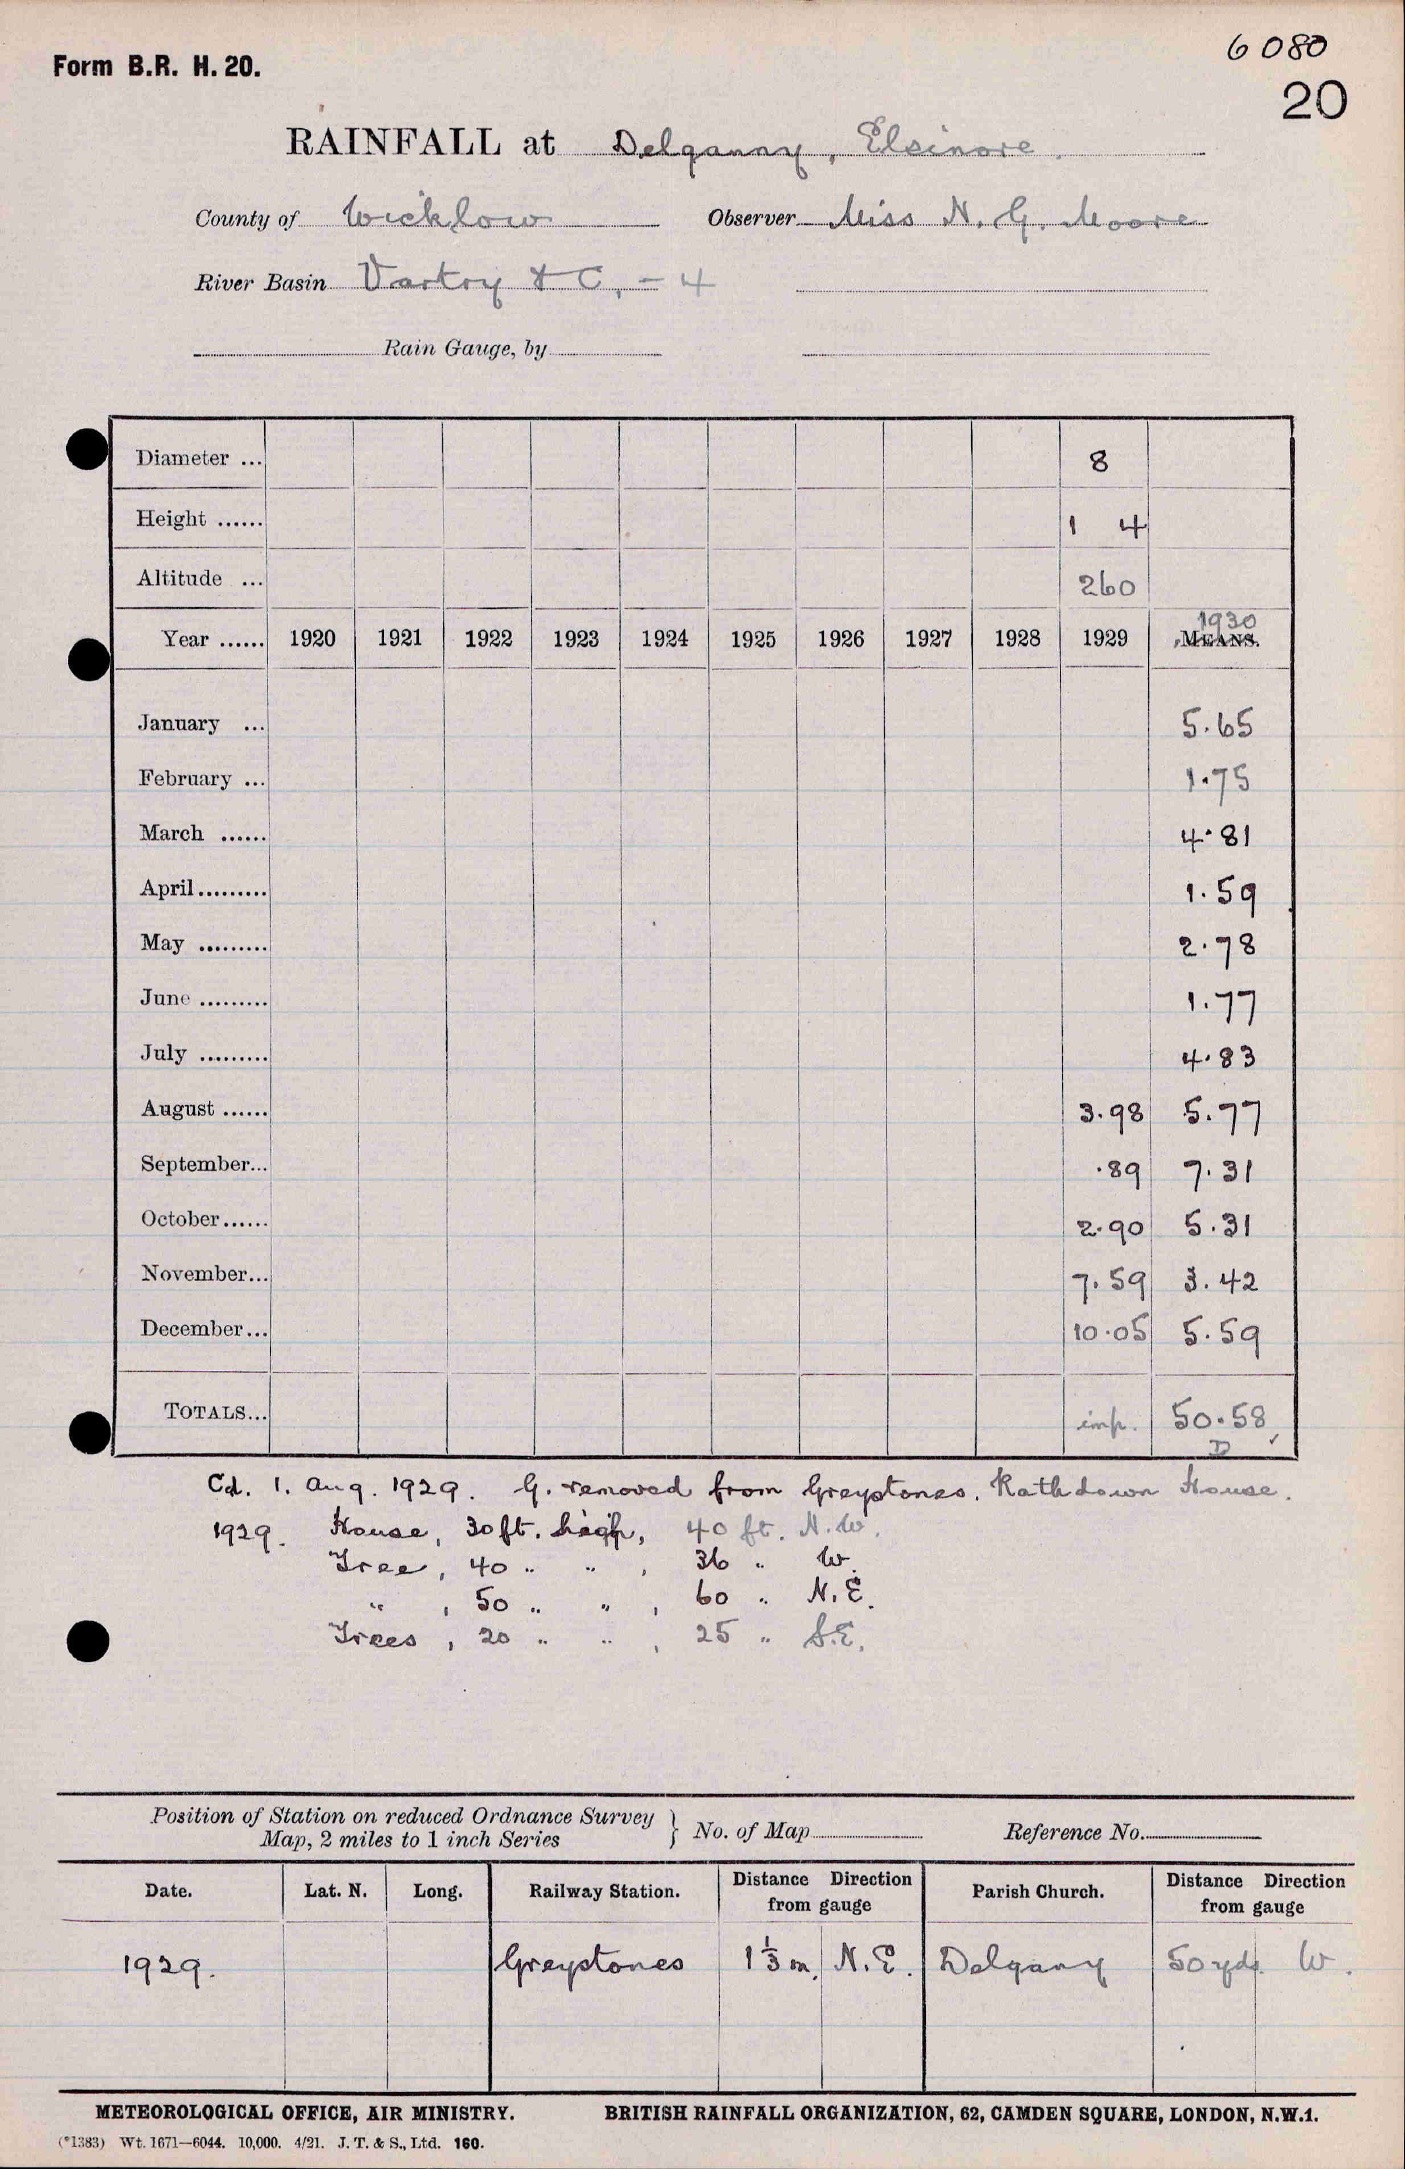 6080
Form B.R. H. 20.
20
RAINFALL at Delganny, Elsinore.
County of Wicklow Observer Miss N. G. Moore
River Basin Vartry &C. - 4
Rain Gauge, by
Diameter ... 8
Height ...... 1 4
Altitude ... 260
1930
Year ...... 1920 1921 1922 1923 1924 1925 1926 1927 1928 1929 MEANS.
January ... 5.65
February ... 1.75
March ...... 4.81
April ......... 1.59
May ......... 2.78
June ......... 1.77
July ......... 4.83
August ...... 3.98 5.77
September... .89 7.31
October...... 2.90 5.31
November... 7.59 3.42
December... 10.05 5.59
TOTALS... imp. 50.58
D ✓
Cd. 1. Aug. 1929. G. removed from Greystones. Rathdown House.
1929. House, 30 ft. high, 40 ft. N.W.
Tree, 40 " " , 36 " W.
" , 50 " " , 60 " N.E.
Trees, 20 " " , 25 " S.E.
Position of Station on reduced Ordnance Survey
Map, 2 miles to 1 inch Series } No. of Map Reference No.
Date. Lat. N. Long. Railway Station. Distance Direction from gauge Parish Church. Distance Direction from gauge
1929. Greystones 1 1/3 m. N.E. Delgany 50 yds. W.
METEOROLOGICAL OFFICE, AIR MINISTRY. BRITISH RAINFALL ORGANIZATION, 62, CAMDEN SQUARE, LONDON, N.W.1.
(*1383) Wt. 1671—6044. 10,000. 4/21. J. T. & S., Ltd. 160.